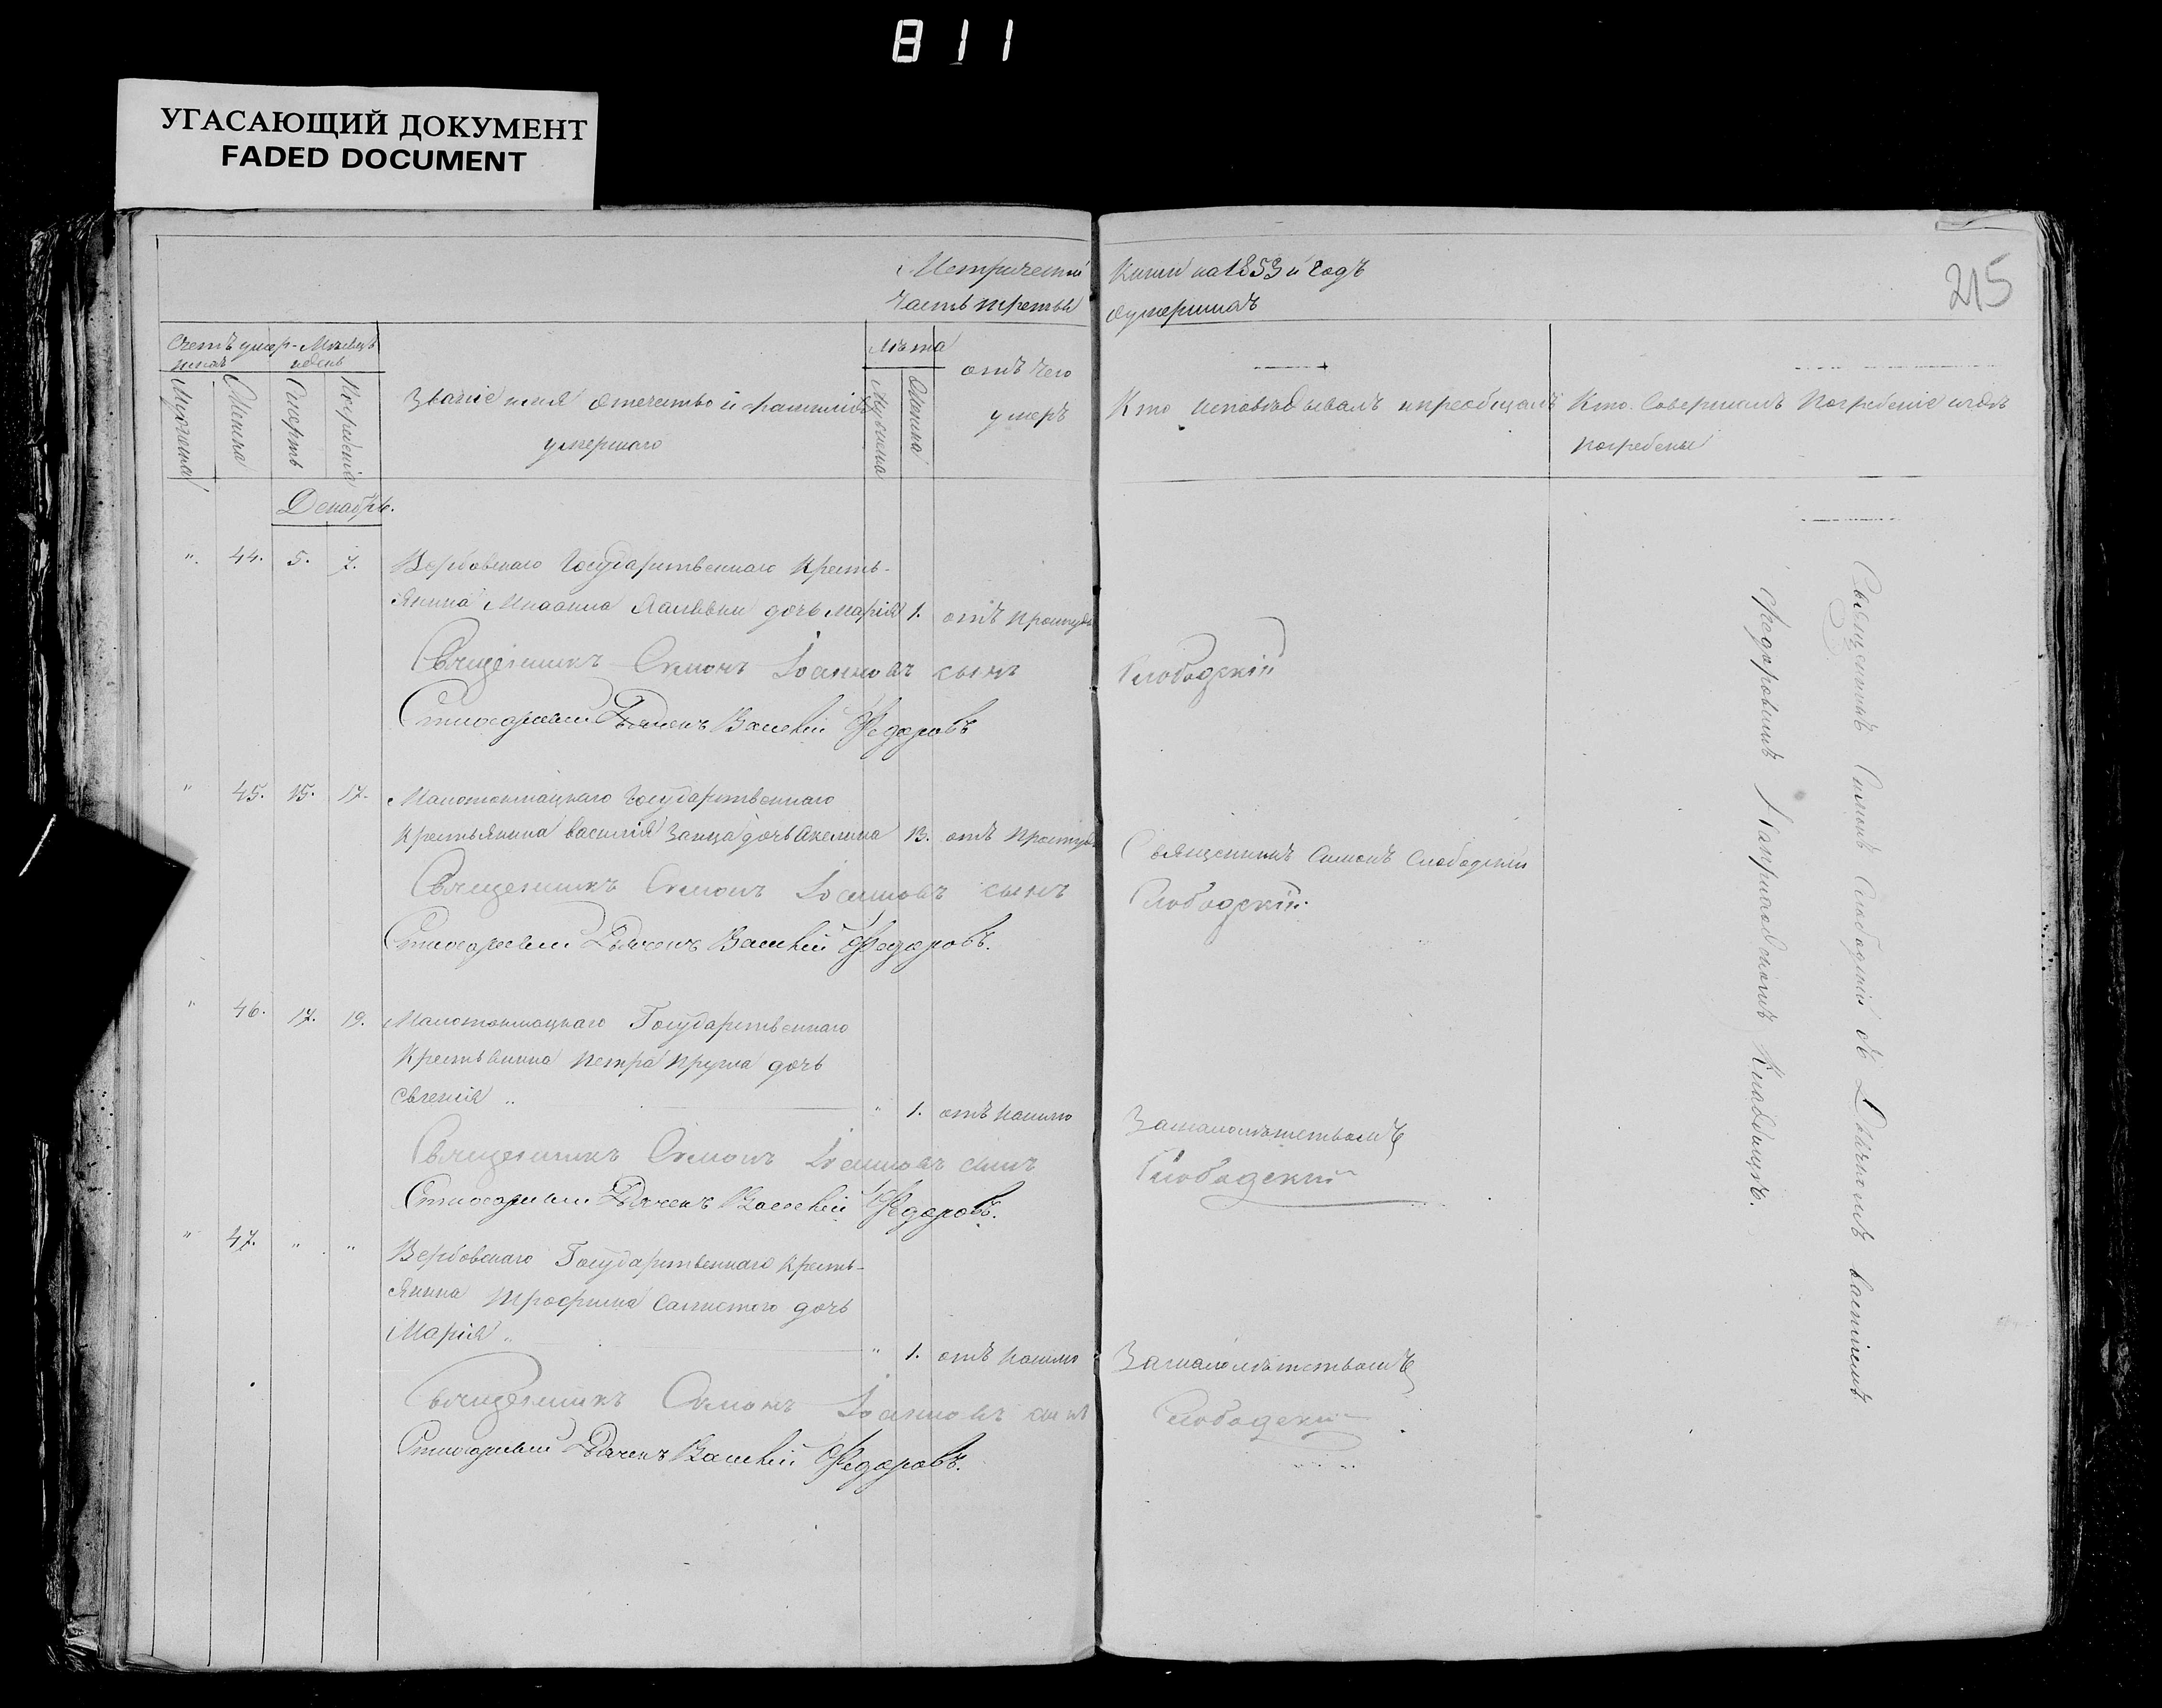 811
УГАСАЮЩИЙ ДОКУМЕНТ
FADED DOCUMENT
215
Метрической книги на 1853й годъ
Часть третья о умершихъ
Счетъ умер-
шихъ
Мѣсяцъ
и день
Мужеска
Женска
Смерть
Погребенія
Званіе имя отечество и фамилія
умершаго
Лѣта
Мужеска
Женска
отъ чего
умеръ
Кто исповѣдывалъ и пріобщалъ
Кто совершалъ погребеніе и гдѣ
погребены
Декабрь.
". 44. 5. 7. Вербовскаго Государственнаго Кресть-
янина дочь Марія 1. отъ простуды
Священникъ Симонъ Іоанновъ сынъ Слободскій
Дьячекъ Василій Федоровъ
" 45. 15. 17. Малотокмацкаго Государственнаго
Крестьянина Василія Заица дочь Акелина 13. отъ простуды
Священникъ Симонъ Слободскій
Священникъ Симонъ Іоанновъ сынъ Слободскій.
Дьячекъ Василій Федоровъ.
" 46. 17. 19. Малотокмацкаго Государственнаго
Крестьянина Петра дочь
Евгенія " " 1. отъ кашлю
За малолѣтствомъ
Священникъ Симонъ Іоанновъ сынъ Слободский
Дьячекъ Василій Федоровъ.
" 47. " " Вербовскаго Государственнаго Кресть-
янина Трофима дочь
Марія " " 1. отъ кашлю
За малолѣтствомъ
Священникъ Симонъ Іоанновъ сынъ Слободский
Дьячекъ Василій Федоровъ.
Священникъ Симонъ Слободскій съ Дьячкомъ Василіемъ
Федоровымъ На приходскомъ Кладбищѣ.